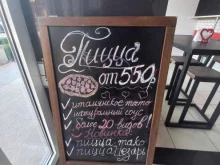 Пицца
от 550р
✓ итальянское тесто
✓ натуральный соус
✓ более 20 видов!
Новинка
✓ пицца тако
✓ пицца цезарь